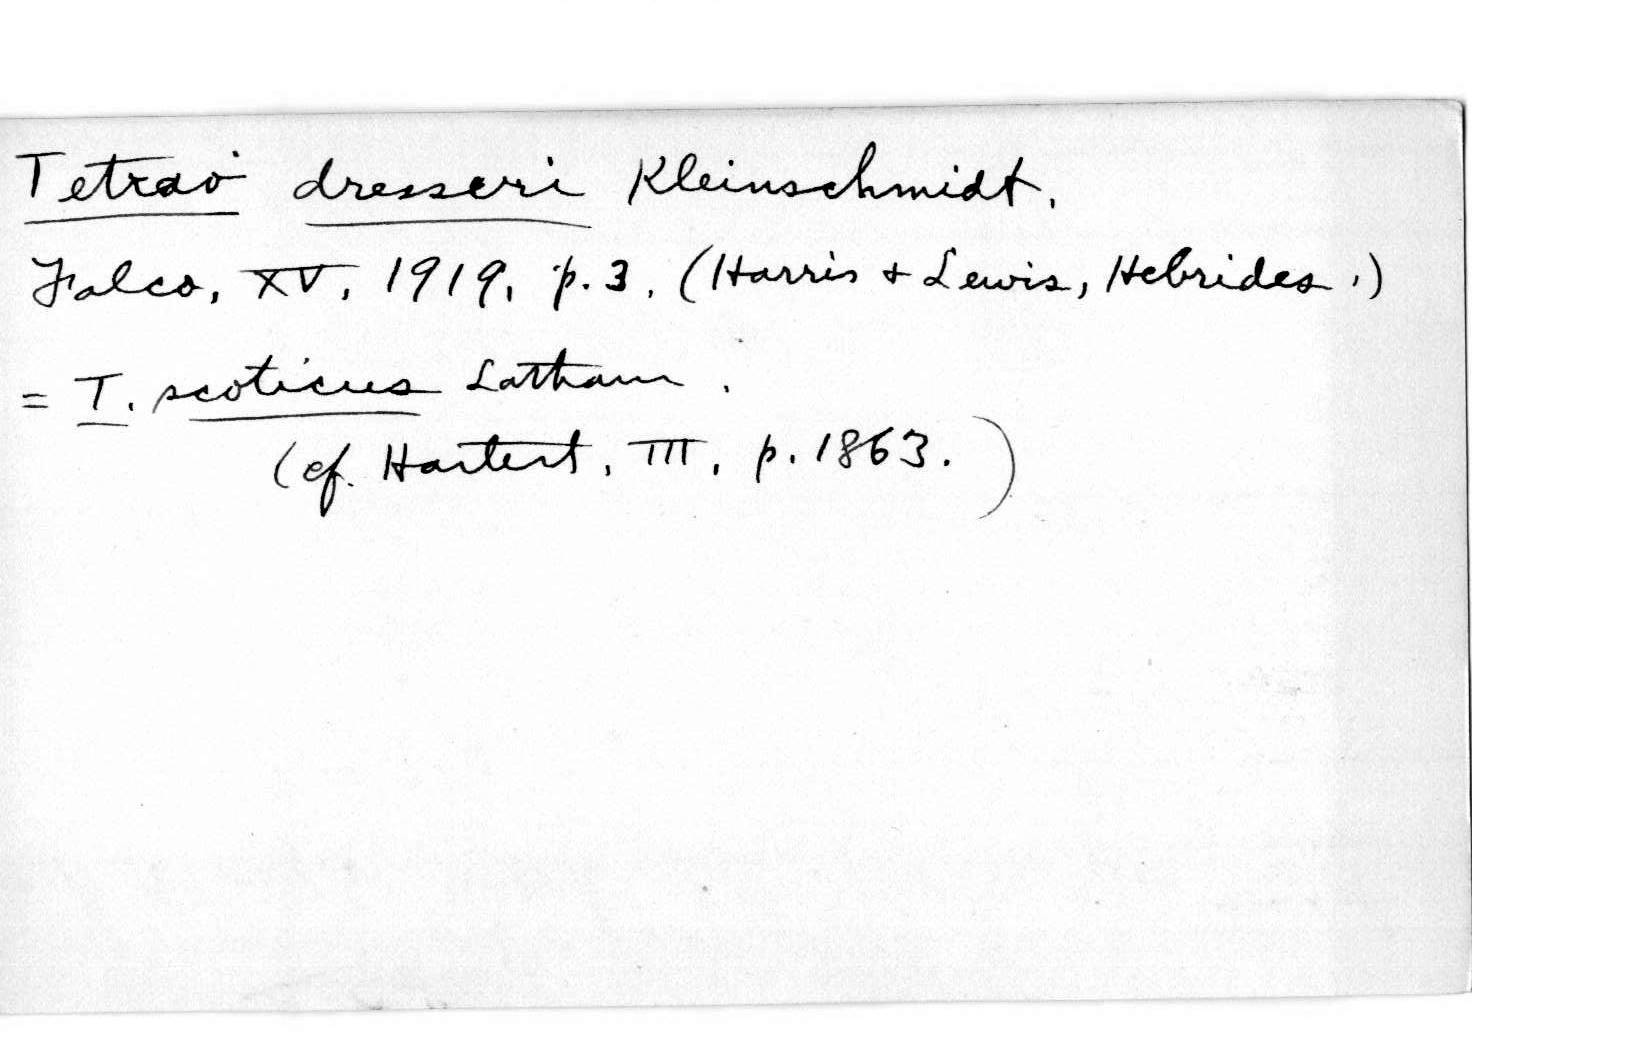 Tetrao dresseri Kleinschmidt.
Falco, XV, 1919, p. 3. (Harris + Lewis, Hebrides.)
= T. scoticus Latham.
(cf. Hartert, III, p. 1863.)